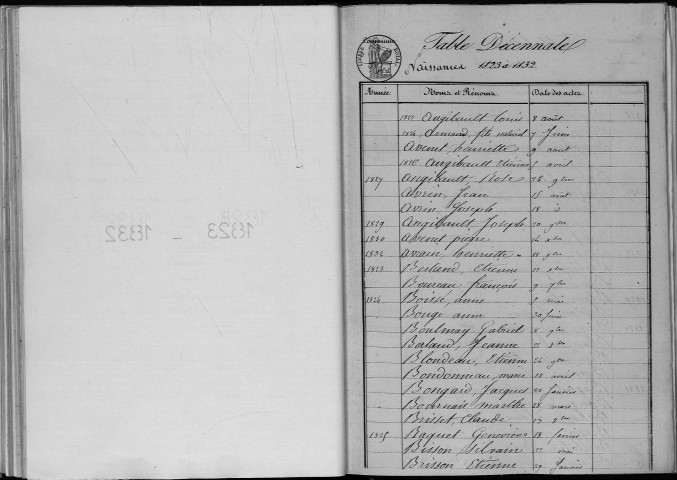 1823 – 1832
Table Décennale
Naissances 1823 à 1832.
Année. Noms et Prénoms Date des actes
1823 Augibault Louis 8 août
1824 Armand, fils naturel 7
Avenet henriette 9 août
1826 Augibault Etienne avril
1827 Augibault, 28 9bre
Avrin, Jean 15 août
Avrin Joseph 18 d
1829 Augibault Joseph 20 9bre
1830 Avenet pierre
1832 Avrain, henriette 18 9bre
1823 Berland, Etienne
Boureau françois 9 9bre
1824 Boissé, anne 8 mai
Bougé anne 20 juin
Boulmay Gabriel 6 9bre
Berland, Jeanne 8bre
Blondeau, Etienne 24 9bre
Bondonneau, marie 18 avril
Bongard, Jacques 20 Janvier
Bournais marthe 28 mars
Brisset, Claude 13 8bre
1825 Baquet Geneviève 18 février
Bisson Silvain mai
Brisson Etienne 29 Janvier